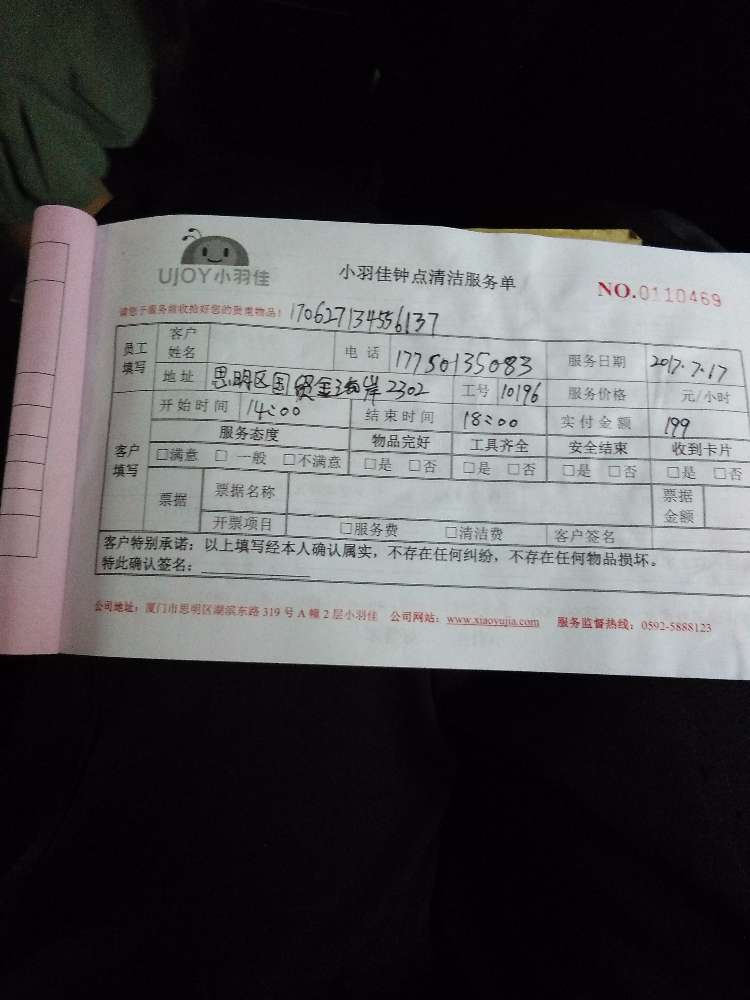 UJOY小羽佳
小羽佳钟点清洁服务单
NO.0110469
请您于服务前收拾好您的贵重物品! 170627134556137
员工填写 客户姓名 电话 17750135083 服务日期 2017.7.17
地址 思明区国贸金海岸2302 工号 10196 服务价格 元/小时
客户填写 开始时间 14:00 结束时间 18:00 实付金额 199
服务态度 物品完好 工具齐全 安全结束 收到卡片
□满意 □ 一般 □不满意 □是 □否 □是 □否 □是 □否 □是 □否
票据 票据名称 票据金额
开票项目 □服务费 □清洁费 客户签名
客户特别承诺:以上填写经本人确认属实,不存在任何纠纷,不存在任何物品损坏。
特此确认签名:
公司地址:厦门市思明区湖滨东路319号A幢2层小羽佳 公司网站:www.xiaoyujia.com 服务监督热线:0592-5888123